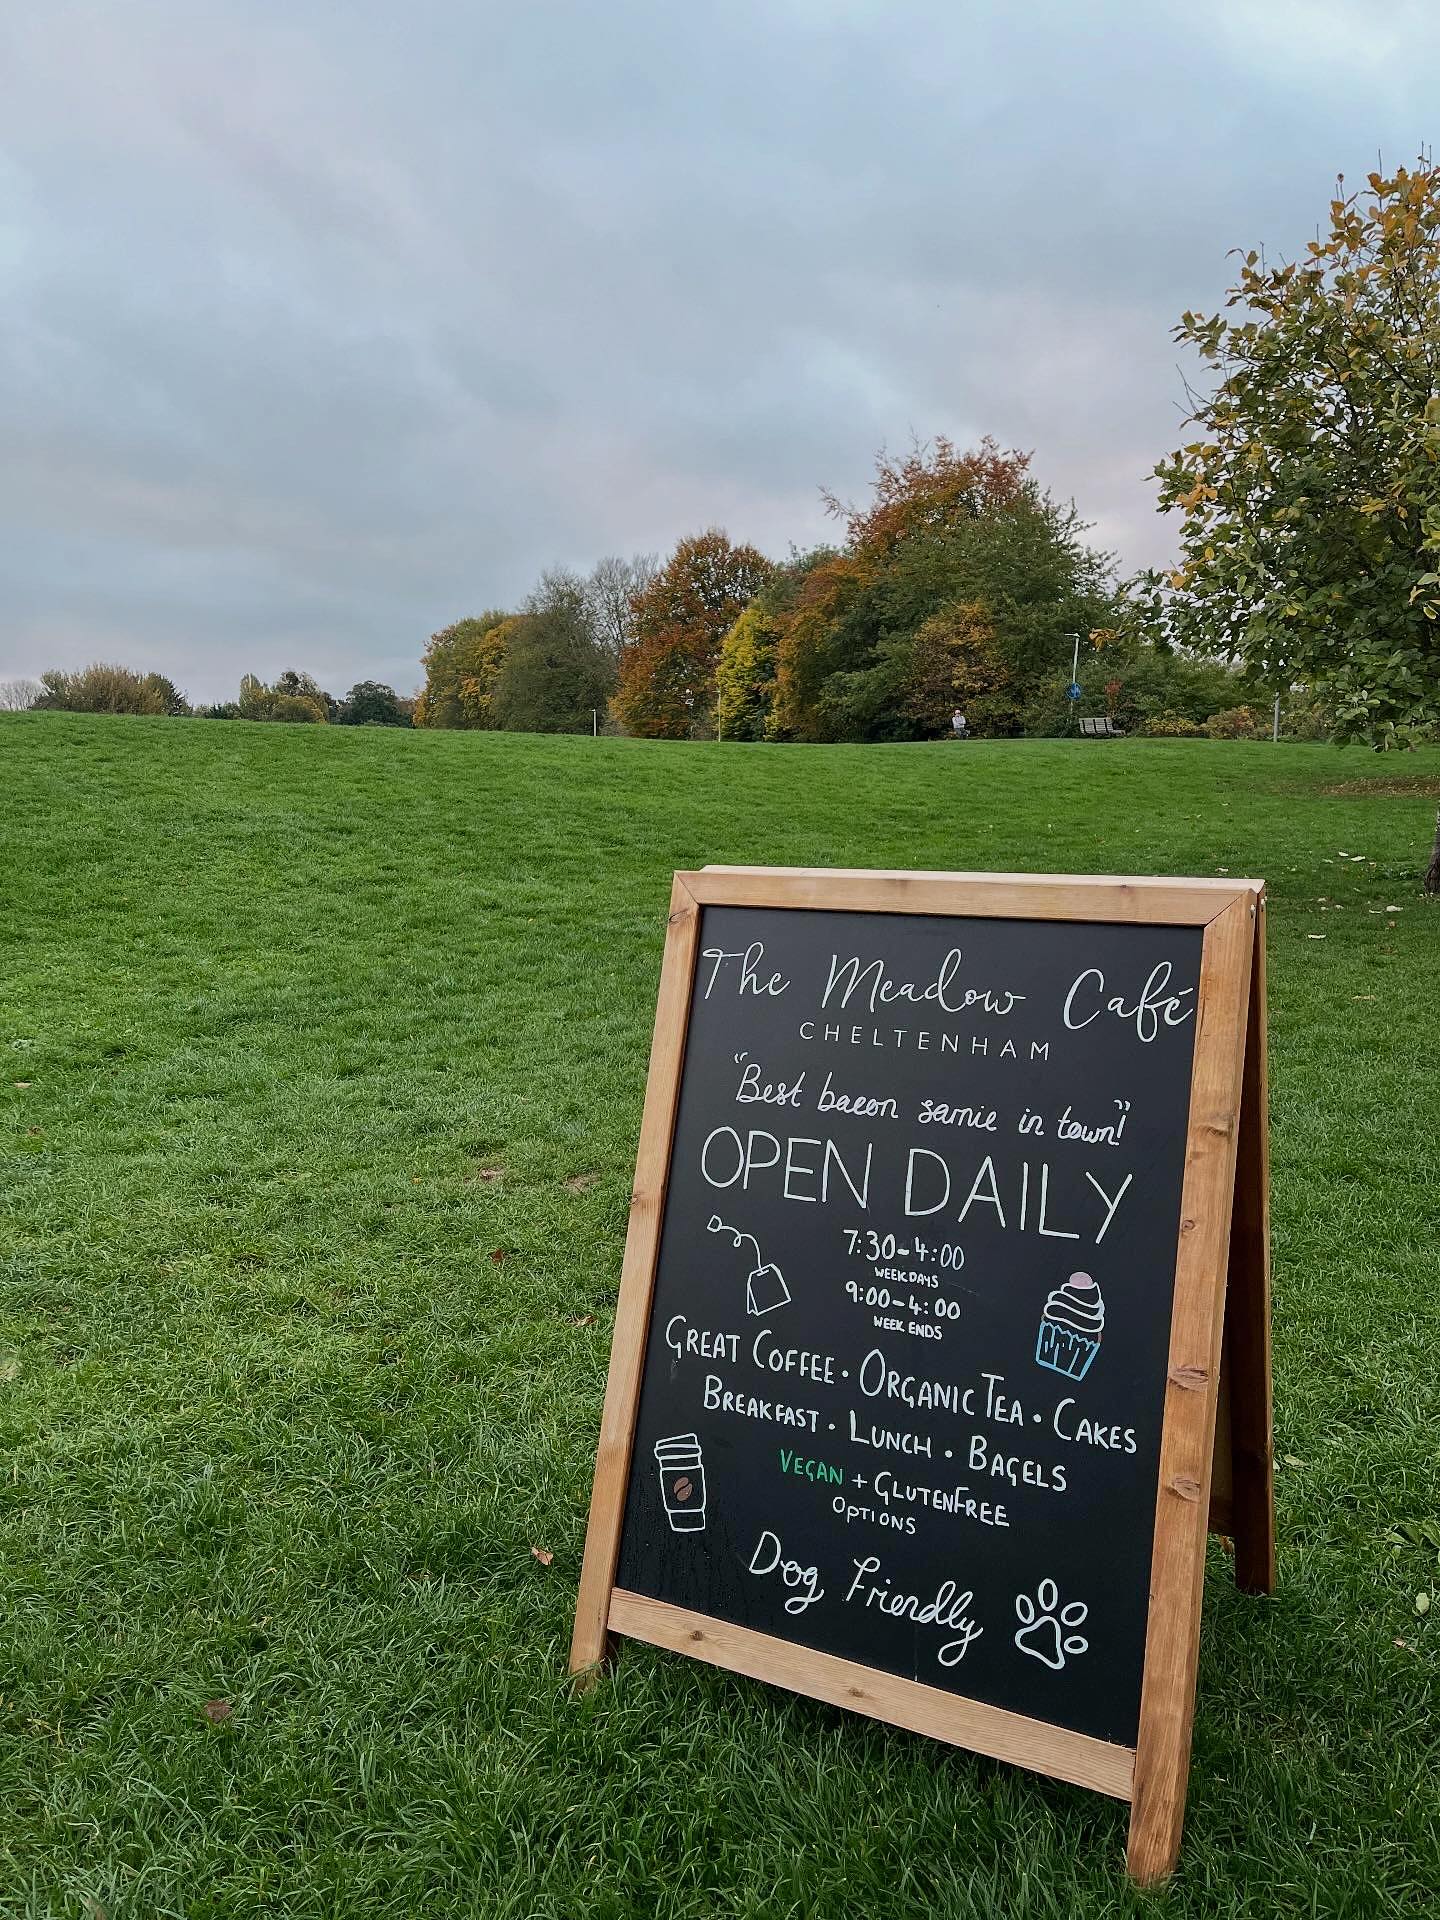 The Meadow Café
CHELTENHAM
"Best bacon sarnie in town!"
OPEN DAILY
7:30-4:00
WEEKDAYS
9:00-4:00
WEEK ENDS
GREAT COFFEE · ORGANIC TEA · CAKES
BREAKFAST · LUNCH · BAGELS
VEGAN + GLUTENFREE
OPTIONS
Dog Friendly